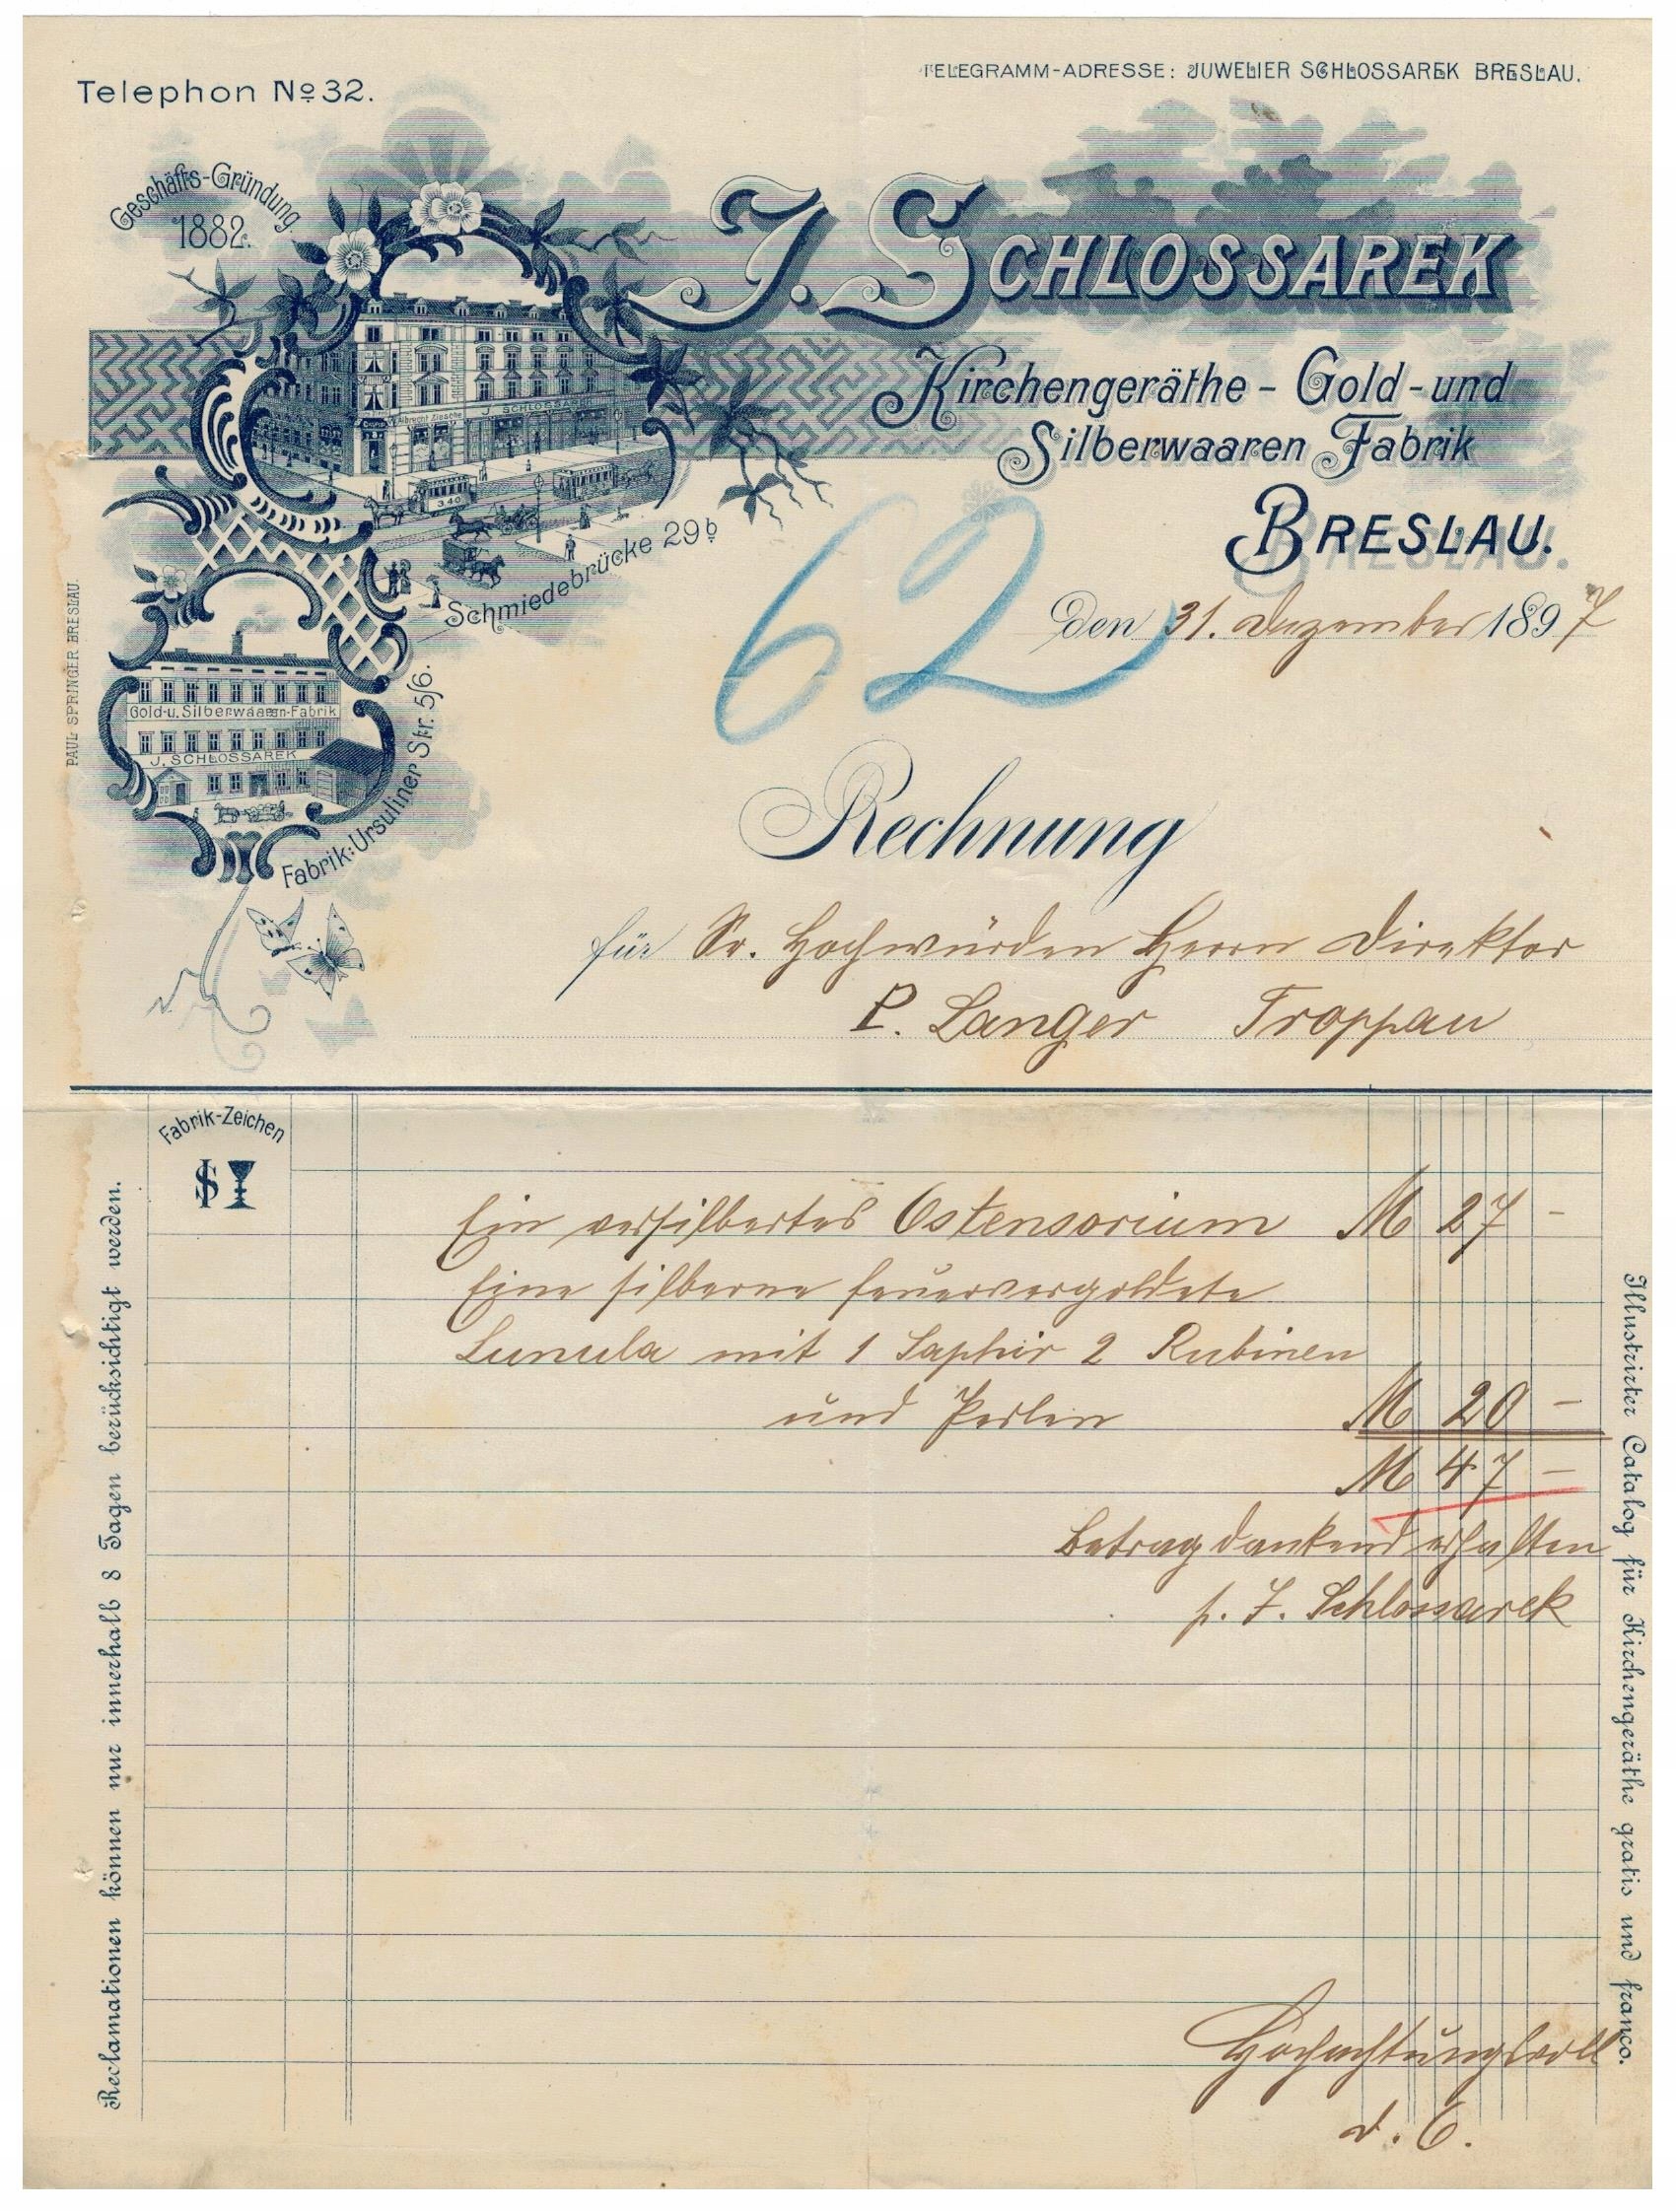 Telephon No 32.
TELEGRAMM-ADRESSE: JUWELIER SCHLOSSAREK BRESLAU.
Geschäfts-Gründung
1882.
J. SCHLOSSAREK
Kirchengeräthe - Gold - und
Silberwaaren Fabrik
BRESLAU.
J. SCHLOSSAREK
340
Schmiedebrücke 29b
62
den 31. Dezember 1897
PAUL SPRINGER BRESLAU.
Gold-u. Silberwaaren-Fabrik
J. SCHLOSSAREK
Fabrik: Ursuliner Str. 5/6.
Rechnung
für Sr. Hochwürden Herrn Direktor
P. Langer Troppau
Fabrik-Zeichen
Ein versilbertes Ostensorium M 27 -
Eine silberne feuervergoldete
Lunula mit 1 Saphir 2 Rubinen
und Perlen M 20 -
M 47 -
Betrag dankend erhalten
p. J. Schlossarek
Hochachtungsvoll
d. O.
Reclamationen können nur innerhalb 8 Tagen berücksichtigt werden.
Illustrirter Catalog für Kirchengeräthe gratis und franco.